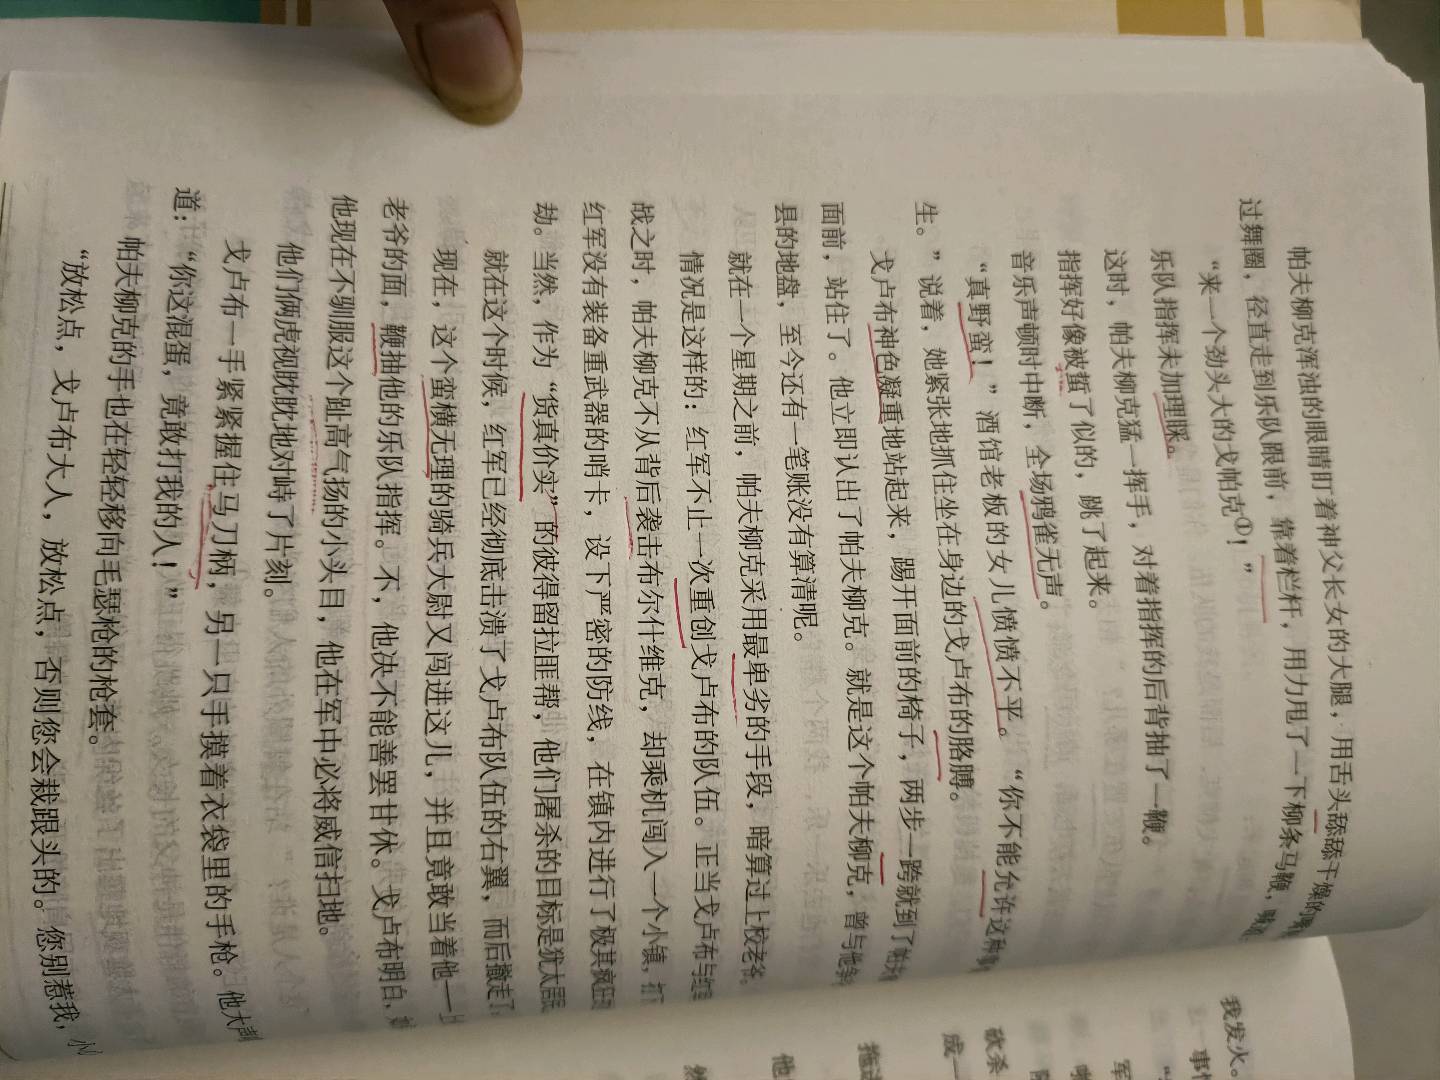 帕夫柳克浑浊的眼睛盯着神父长女的大腿，用舌头舔舔干燥的
过舞圈，径直走到乐队跟前，靠着栏杆，用力甩了一下柳条马鞭，
“来一个劲头大的戈帕克①！”
乐队指挥未加理睬。
这时，帕夫柳克猛一挥手，对着指挥的后背抽了一鞭。
指挥好像被蜇了似的，跳了起来。
音乐声顿时中断，全场鸦雀无声。
“真野蛮！”酒馆老板的女儿愤愤不平。“你不能允许这种
生。”说着，她紧张地抓住坐在身边的戈卢布的胳膊。
戈卢布神色凝重地站起来，踢开面前的椅子，两步一跨就到了帕夫
面前，站住了。他立即认出了帕夫柳克。就是这个帕夫柳克，曾与他争
县的地盘，至今还有一笔账没有算清呢。
就在一个星期之前，帕夫柳克采用最卑劣的手段，暗算过上校老爷。
情况是这样的：红军不止一次重创戈卢布的队伍。正当戈卢布与红
战之时，帕夫柳克不从背后袭击布尔什维克，却乘机闯入一个小镇，打
红军没有装备重武器的哨卡，设下严密的防线，在镇内进行了极其疯狂
劫。当然，作为“货真价实”的彼得留拉匪帮，他们屠杀的目标是犹太居民
就在这个时候，红军已经彻底击溃了戈卢布队伍的右翼，而后撤走了
现在，这个蛮横无理的骑兵大尉又闯进这儿，并且竟敢当着他——上
老爷的面，鞭抽他的乐队指挥。不，他决不能善罢甘休。戈卢布明白，
他现在不驯服这个趾高气扬的小头目，他在军中必将威信扫地。
他们俩虎视眈眈地对峙了片刻。
戈卢布一手紧紧握住马刀柄，另一只手摸着衣袋里的手枪。他大
道：“你这混蛋，竟敢打我的人！”
帕夫柳克的手也在轻轻移向毛瑟枪的枪套。
“放松点，戈卢布大人，放松点，否则您会栽跟头的。您别惹我，小
我发火。
事情
军
砍杀
成一
拖进
他
然